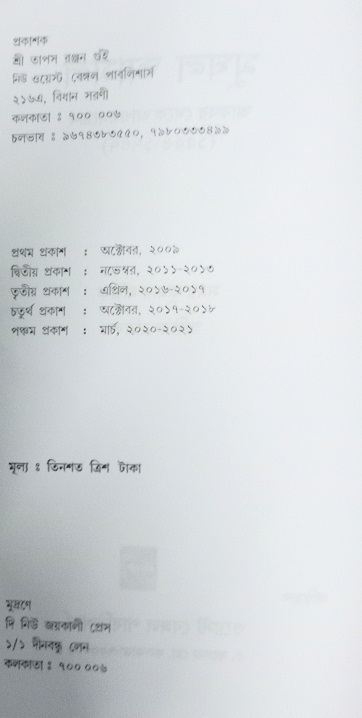 প্রকাশক
শ্রী তাপস রঞ্জন গুঁই
নিউ ওয়েস্ট বেঙ্গল পাবলিশার্স
২১৬এ, বিধান সরণী
কলকাতা : ৭০০ ০০৬
চলভাষ : ৯৬৭৪৩৮৩৫৫০, ৭৯৮০৩৩৩৪৯৯
প্রথম প্রকাশ : অক্টোবর, ২০০৯
দ্বিতীয় প্রকাশ : নভেম্বর, ২০১১-২০১৩
তৃতীয় প্রকাশ : এপ্রিল, ২০১৬-২০১৭
চতুর্থ প্রকাশ : অক্টোবর, ২০১৭-২০১৮
পঞ্চম প্রকাশ : মার্চ, ২০২০-২০২১
মূল্য : তিনশত ত্রিশ টাকা
মুদ্রণে
দি নিউ জয়কালী প্রেস
১/১ দীনবন্ধু লেন
কলকাতা : ৭০০ ০০৬